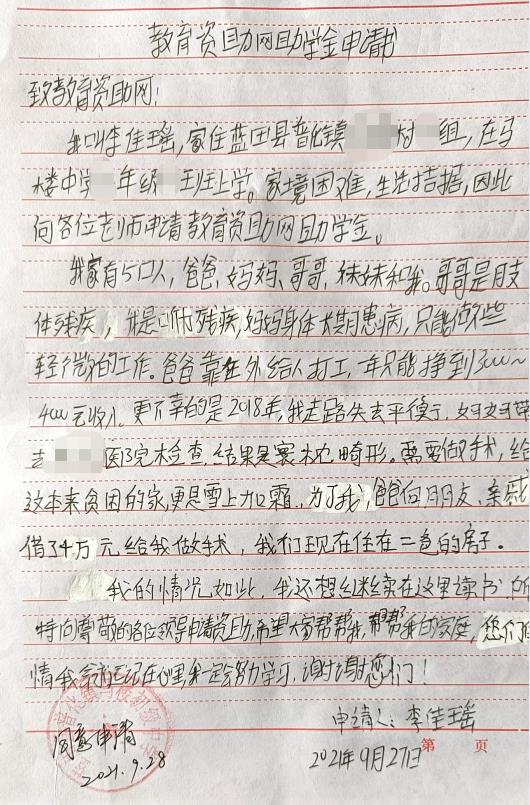 教育资助网助学金申请书
致教育资助网:
我叫李佳瑶,家住蓝田县普化镇 村 组,在马
楼中学 年级 班上学。家境困难,生活拮据,因此
向各位老师申请教育资助网助学金。
我家有5口人,爸爸、妈妈、哥哥、妹妹和我。哥哥是肢
体残疾,我是听力残疾,妈妈身体长期患病,只能做些
轻微的工作。爸爸靠在外给人打工,一年只能挣到3000~
4000元收入。更不幸的是2018年,我走路失去平衡了,妈妈带
去 医院检查,结果是寰枕畸形。需要做手术,给
这本来贫困的家更是雪上加霜,为了我,爸爸向朋友、亲戚
借了4万元给我做手术,我们现在住在二爸的房子。
我的情况如此,我还想继续在这里读书,所
特向尊敬的各位领导申请资助,希望大家帮帮我,帮帮我的家庭,您们的
情我会永远记在心里,我一定会努力学习,谢谢您们!
申请人:李佳瑶
2021年9月27日
第 页
同意申请
2021.9.28